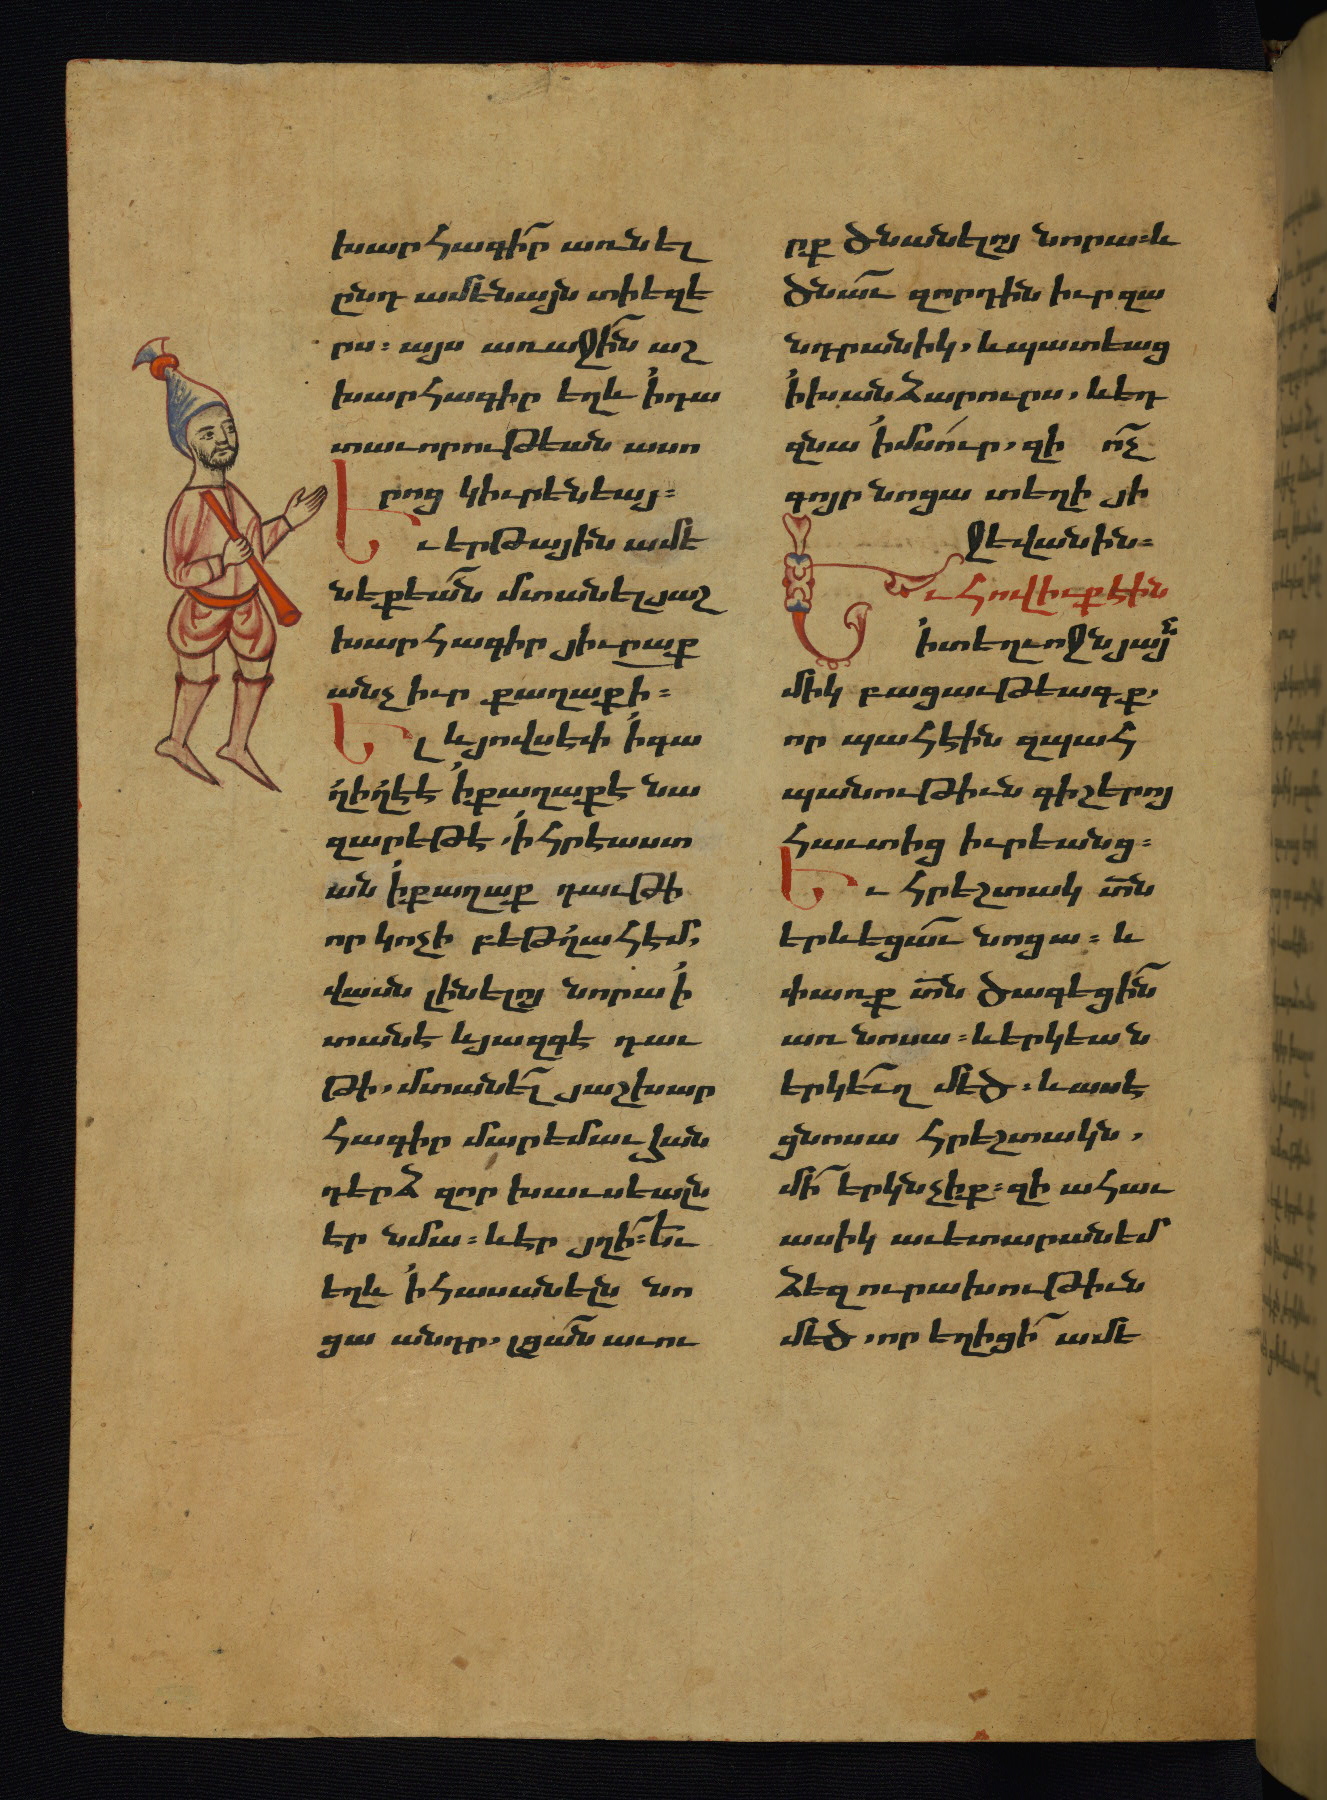 խարհագի՜ր առնել
ընդ ամենայն տիեզե
րս։ այս առաջի՜ն աշ
խարհագիր եղև ՛ի դա
տաւորութեան ասո
րոց կիւրենեայ։
Եւ երթային ամե
նեքեա՜ն մտանել յաշ
խարհագիր յիւրաք
անչ իւր քաղաքի։
Ել և յովսէփ ՛ի գա
ղիղէէ ՛ի քաղաքէ նա
զարեթէ, ՛ի հրէաստ
ան ՛ի քաղաք դաւթի
որ կոչի բեթղահէմ,
վասն լինելոյ նորա ՛ի
տանէ և յազգէ դաւ
թի, մտանե՜լ յաշխար
հագիր մարեմաւ հան
դերձ զոր խաւսեալն
էր նմա։ և էր յղի՜։ Եւ
եղև ՛ի հասանելն նո
ցա անդր, լցա՜ն աւու
րք ծնանելոյ նորա։ և
ծնա՜ւ զորդին իւր զա
նդրանիկ, և պատեաց
՛ի խանձարուրս, և եդ
զնա ՛ի մսուր, զի ո՜չ
գոյր նոցա տեղի յի
ջևանին։
Եւ հովիւք էին
՛ի տեղւոջն յայս
միկ բացաւթեագք,
որ պահէին զպահ
պանութիւն գիշերոյ
հաւտից իւրեանց։
Եւ հրեշտակ տ՜ն
երևեցա՜ւ նոցա։ և
փառք տ՜ն ծագեցի՜ն
առ նոսա։ և երկեան
երկե՜ւղ մեծ։ և ասէ
ցնոսա հրեշտակն,
մի՜ երկնչիք։ զի ահաւ
ասիկ աւետարանեմ
ձեզ ուրախութիւն
մեծ, որ եղիցի՜ ամե